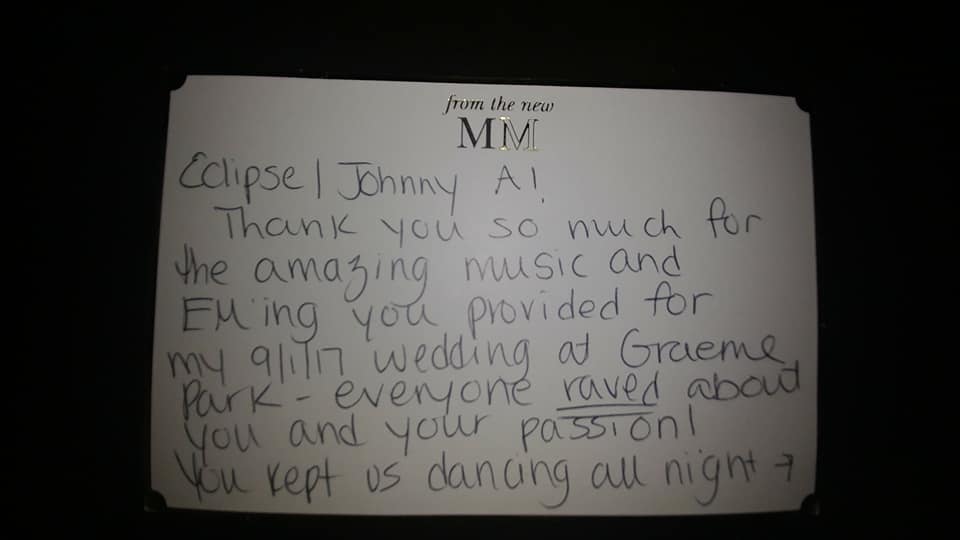 from the new
MM
Eclipse | Johnny A!
Thank you so much for
the amazing music and
EM'ing you provided for
my 9/1/17 wedding at Graeme
Park - everyone raved about
you and your passion!
You kept us dancing all night →